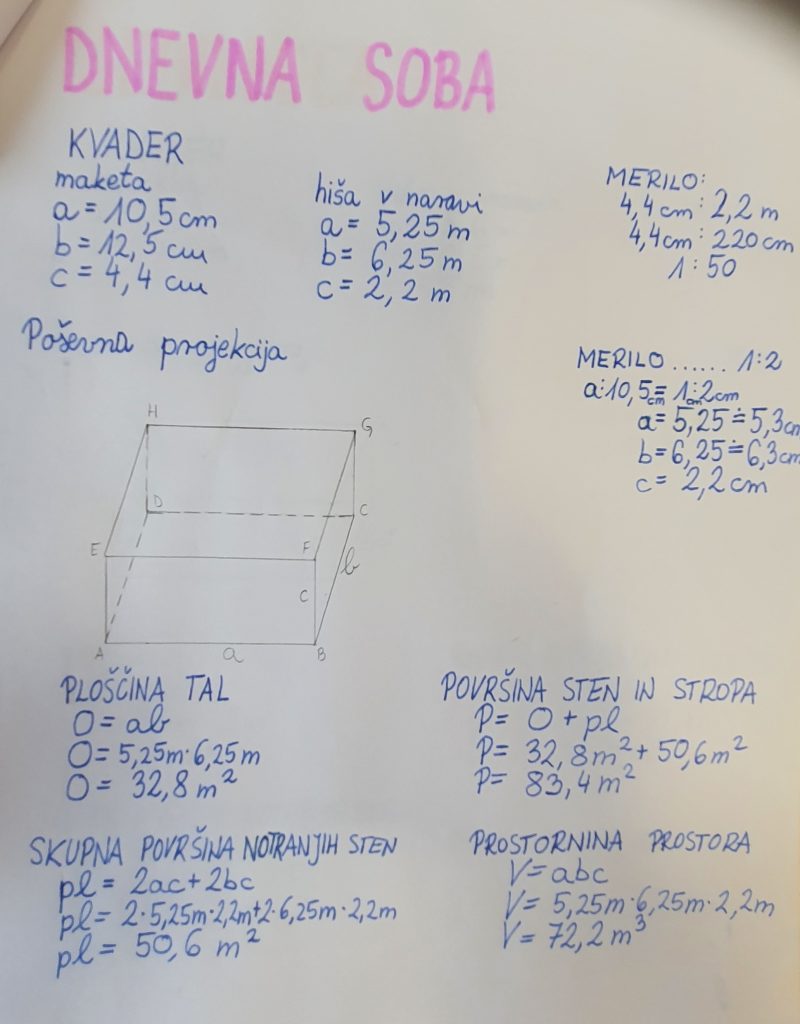 DNEVNA SOBA
KVADER
maketa
a = 10,5 cm
b = 12,5 cm
c = 4,4 cm
hiša v naravi
a = 5,25 m
b = 6,25 m
c = 2,2 m
MERILO:
4,4 cm : 2,2 m
4,4 cm : 220 cm
1 : 50
Poševna projekcija
MERILO ...... 1:2
a:10,5 cm = 1 cm : 2 cm
a = 5,25 ≐ 5,3 cm
b = 6,25 ≐ 6,3 cm
c = 2,2 cm
H
G
D
C
E
F
b
c
A
a
B
PLOŠČINA TAL
O = ab
O = 5,25m·6,25m
O = 32,8 m²
POVRŠINA STEN IN STROPA
P = O + pl
P = 32,8m² + 50,6m²
P = 83,4 m²
SKUPNA POVRŠINA NOTRANJIH STEN
pl = 2ac + 2bc
pl = 2·5,25m·2,2m+2·6,25m·2,2m
pl = 50,6 m²
PROSTORNINA PROSTORA
V = abc
V = 5,25m·6,25m·2,2m
V = 72,2 m³